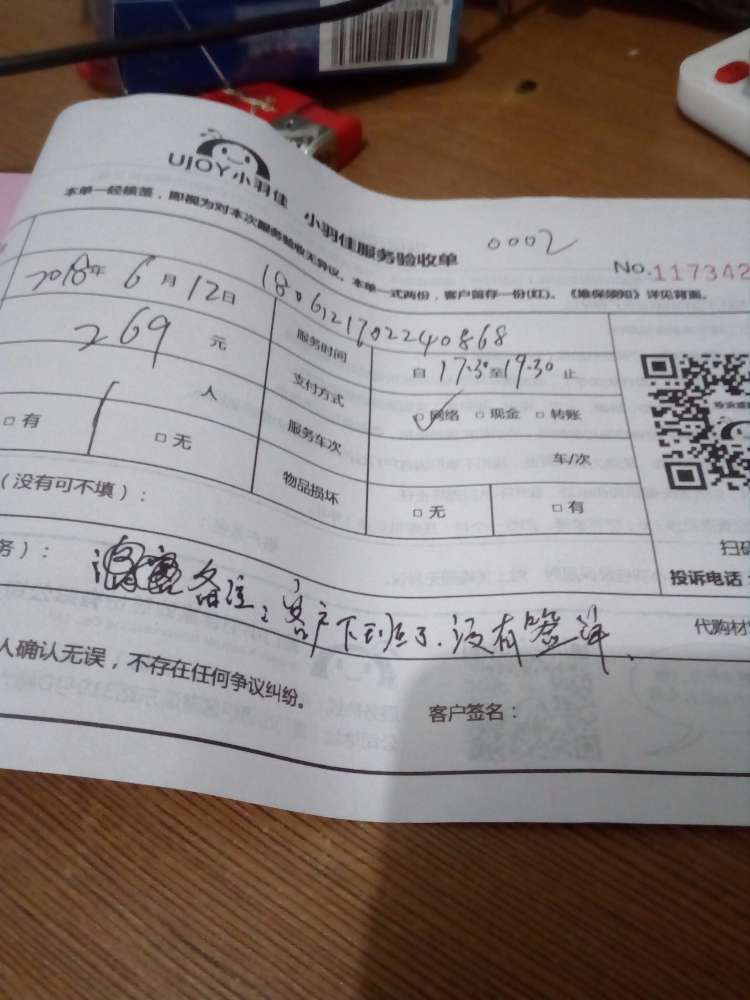 UJOY小羽佳 小羽佳服务验收单
0002
No.117342
本单一经核签，即视为对本次服务验收无异议。本单一式两份，客户留存一份(红)。《维保须知》详见背面。
1806121702240868
2018年6月12日 服务时间 自17:30至19:30止
269元 支付方式 网络 现金 转账
1人 服务车次 车/次
有 无 物品损坏 无 有
（没有可不填）：
务）： 备注：客户下班了.没有签单.
扫码
投诉电话：
代购材
人确认无误，不存在任何争议纠纷。
客户签名：